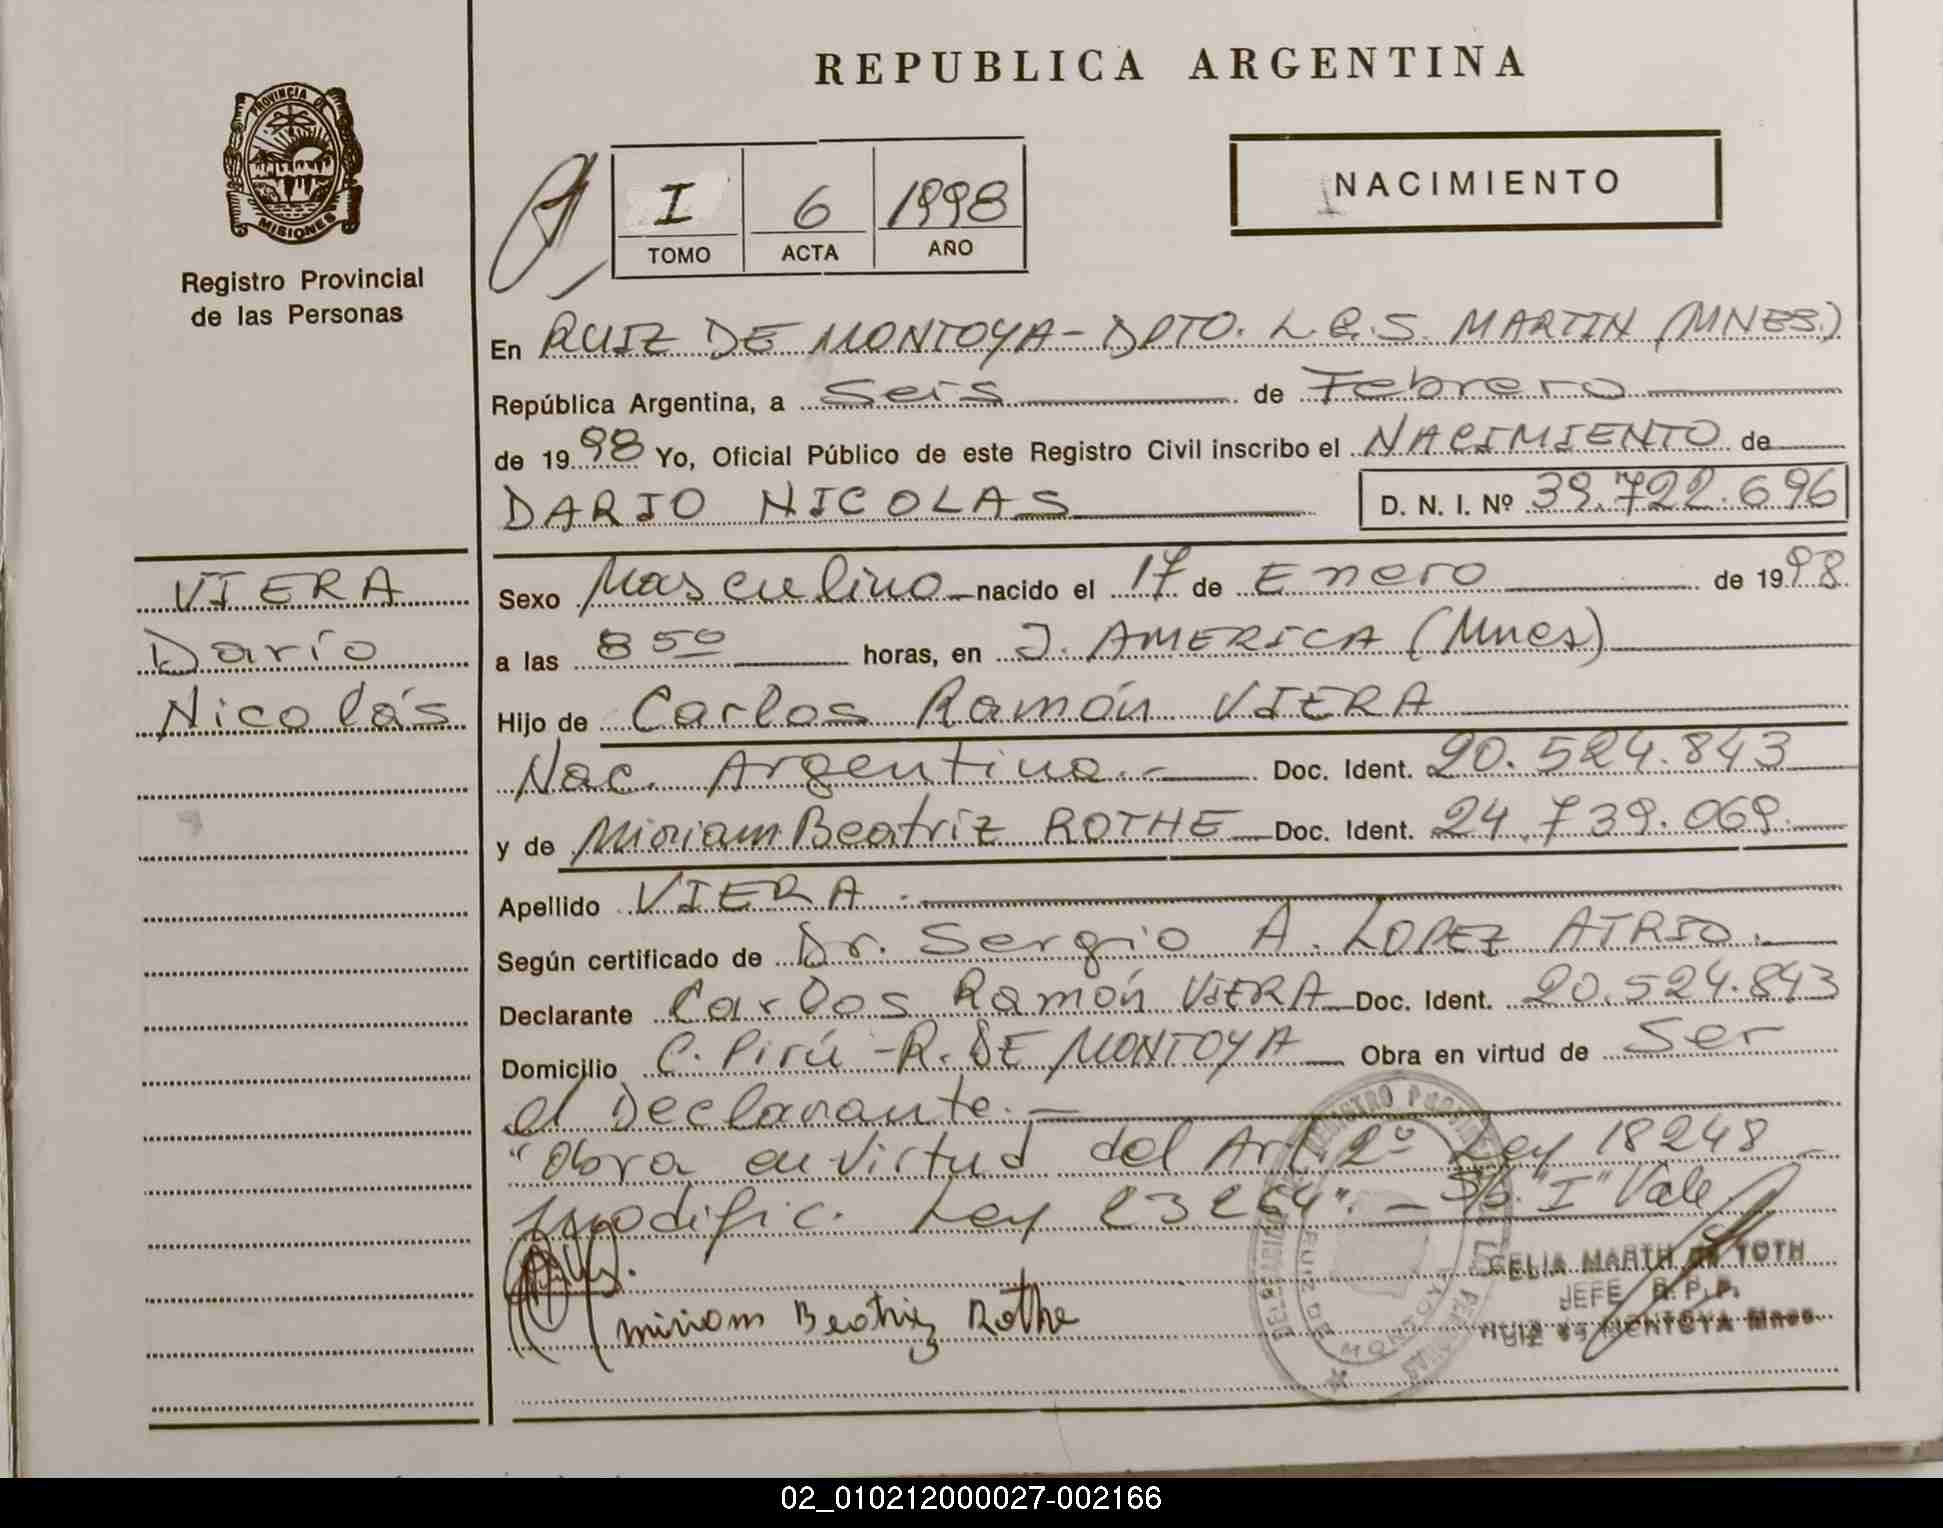 REPUBLICA ARGENTINA
PROVINCIA DE
MISIONES
Registro Provincial
de las Personas
I 6 1998
TOMO ACTA AÑO
NACIMIENTO
En RUIZ DE MONTOYA - DPTO. L.G.S. MARTIN (MNES.)
República Argentina, a Seis de Febrero
de 1998 Yo, Oficial Público de este Registro Civil inscribo el NACIMIENTO de
DARIO NICOLAS D. N. I. Nº 39.722.696
VIERA
Darío
Nicolás
Sexo Masculino nacido el 17 de Enero de 1998
a las 8 50 horas, en J. AMERICA (Mnes)
Hijo de Carlos Ramón VIERA
Nac. Argentina.- Doc. Ident. 20.524.843
y de Miriam Beatriz ROTHE Doc. Ident. 24.739.069
Apellido VIERA.
Según certificado de Dr. Sergio A. LOPEZ ATRIO.
Declarante Carlos Ramón VIERA Doc. Ident. 20.524.843
Domicilio C. Pirú - R. DE MONTOYA Obra en virtud de Ser
el Declarante.-
"Obra en virtud del Art. 2º Ley 18248
modific. Ley 23264". - S/b. "I" Vale.
Miriam Beatriz Rothe
CELIA MARTH DE TOTH
JEFE R.P.P.
RUIZ DE MONTOYA Mnes.
02_010212000027-002166